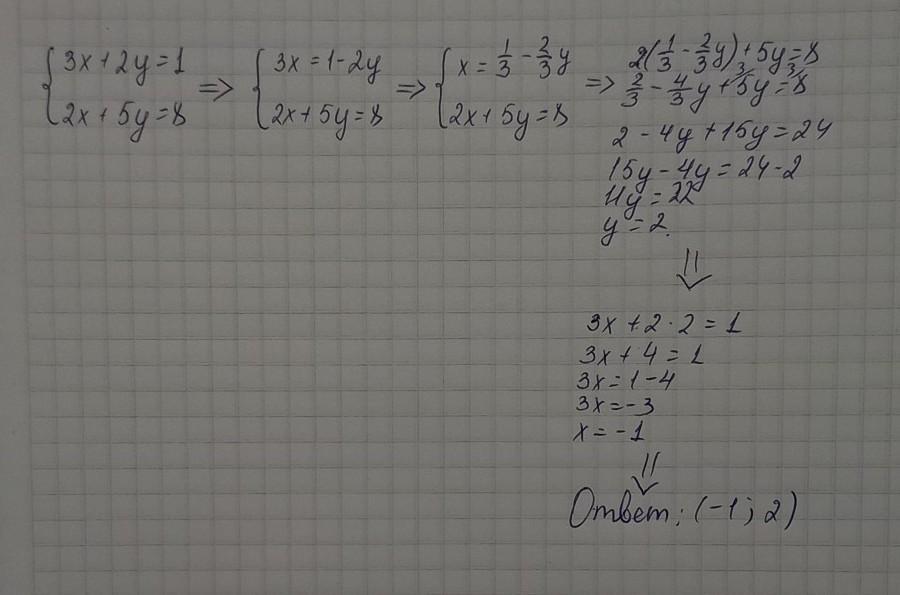 { 3x + 2y = 1
2x + 5y = 8
=> { 3x = 1 - 2y
2x + 5y = 8
=> { x = 1/3 - 2/3 y
2x + 5y = 8
=> 2(1/3 - 2/3 y) + 5y = 8
2/3 - 4/3 y + 5y = 8
2 - 4y + 15y = 24
15y - 4y = 24 - 2
11y = 22
y = 2.
3x + 2 · 2 = 1
3x + 4 = 1
3x = 1 - 4
3x = -3
x = -1
Ответ: (-1; 2)